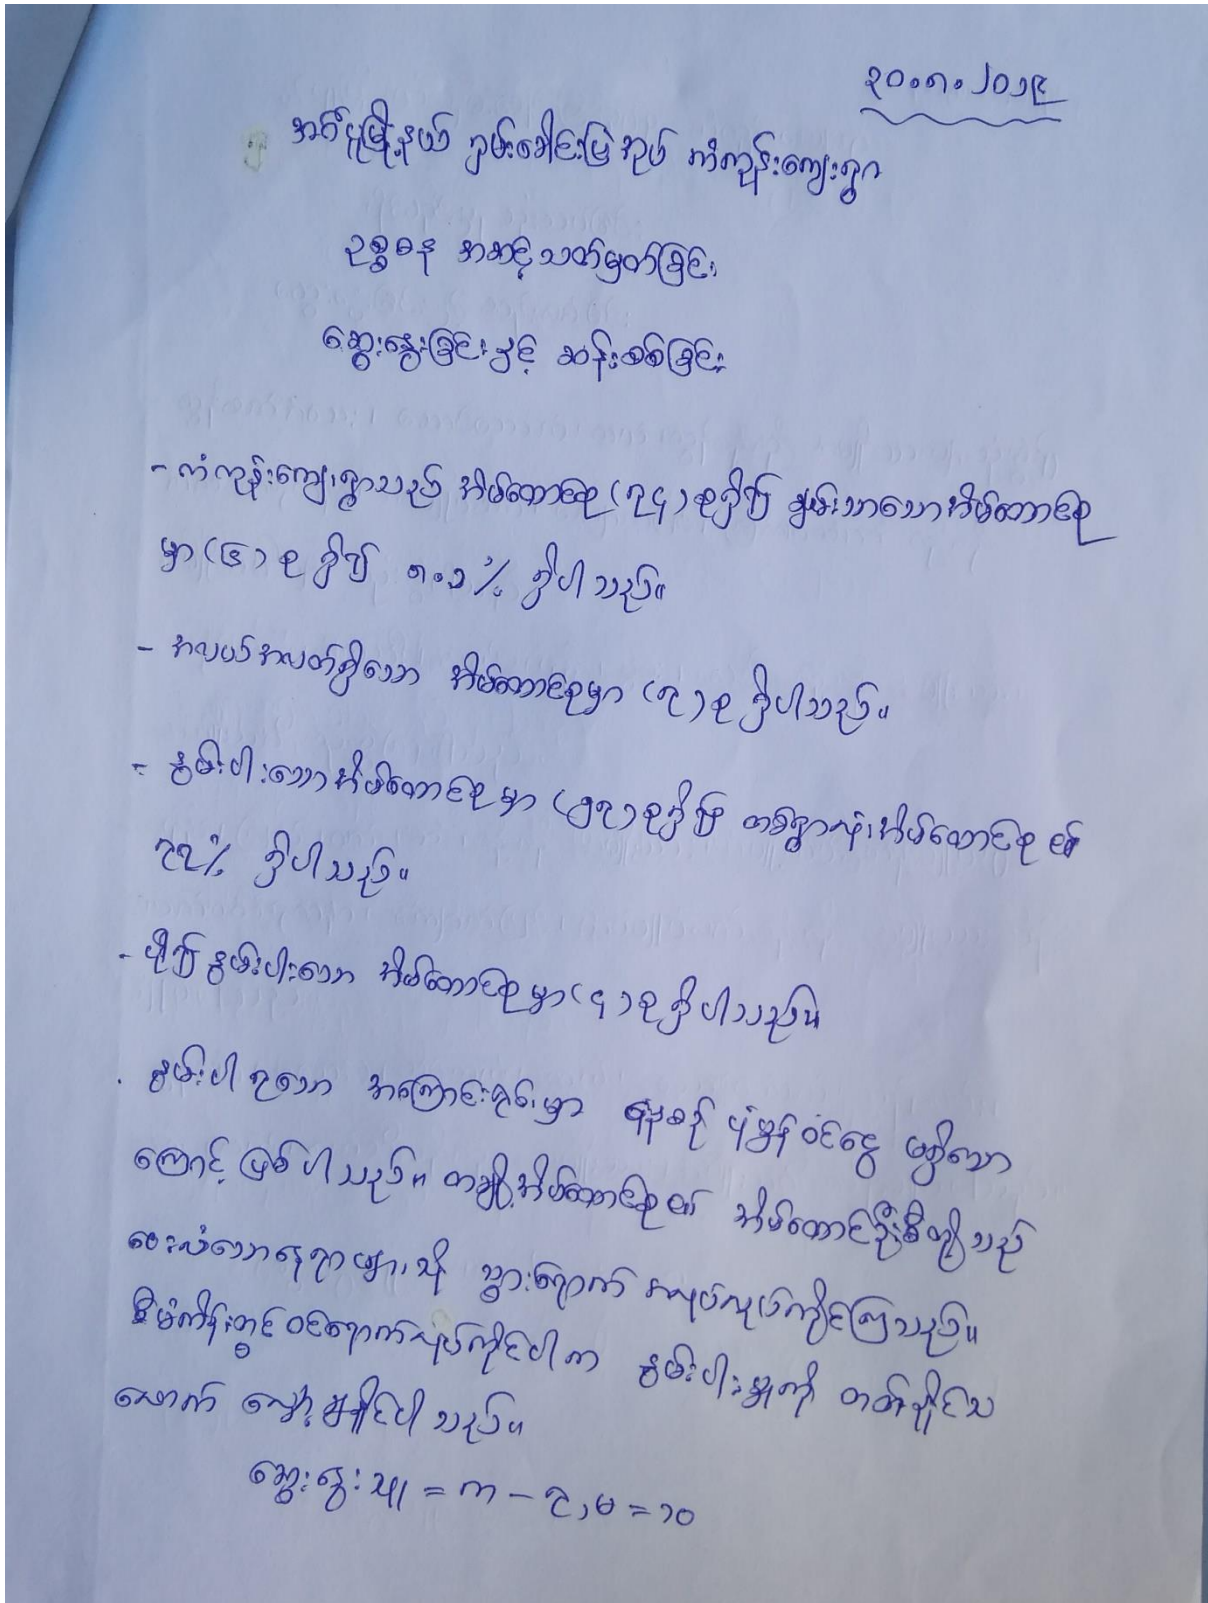 ၃၀.၈.၂၀၁၉
အင်္ဂပူမြို့နယ် ရှမ်းခေါင်းပြအုပ်စု ကံကုန်းကျေးရွာ
ဥစ္စဓန အဆင့်သတ်မှတ်ခြင်း
ဆွေးနွေးခြင်းနှင့် ဆန်းစစ်ခြင်း
- ကံကုန်းကျေးရွာသည် အိမ်ထောင်စု (၇၄) စုရှိပြီး ချမ်းသာသောအိမ်ထောင်စု
မှာ (၆) စု ရှိပြီး ၈.၁ % ရှိပါသည်။
- အလယ်အလတ်ရှိသော အိမ်ထောင်စုမှာ (၇) စု ရှိပါသည်။
- နွမ်းပါးသောအိမ်ထောင်စုမှာ (၅၇) စုရှိပြီး တစ်ရွာလုံးအိမ်ထောင်စု ၏
၇၇% ရှိပါသည်။
- ပို၍ နွမ်းပါးသော အိမ်ထောင်စုမှာ (၄) စု ရှိပါသည်။
. နွမ်းပါးရသော အကြောင်းရင်းမှာ နေ့စဉ် ပုံမှန် ဝင်ငွေ မရှိသော
ကြောင့် ဖြစ်ပါသည်။ တချို့အိမ်ထောင်စု၏ အိမ်ထောင်ဦးစီးတို့သည်
ဝေးလံသောနေရာများသို့ သွားရောက် အလုပ်လုပ်ကိုင်ကြသည်။
စီမံကိန်းတွင် ဝင်ရောက်လုပ်ကိုင်ပါက နွမ်းပါးမှုကို တတ်နိုင်သ
လောက် လျှော့ချနိုင်ပါသည်။
ဆွေးနွေးသူ = ကျား - ၃, မ = ၁၀